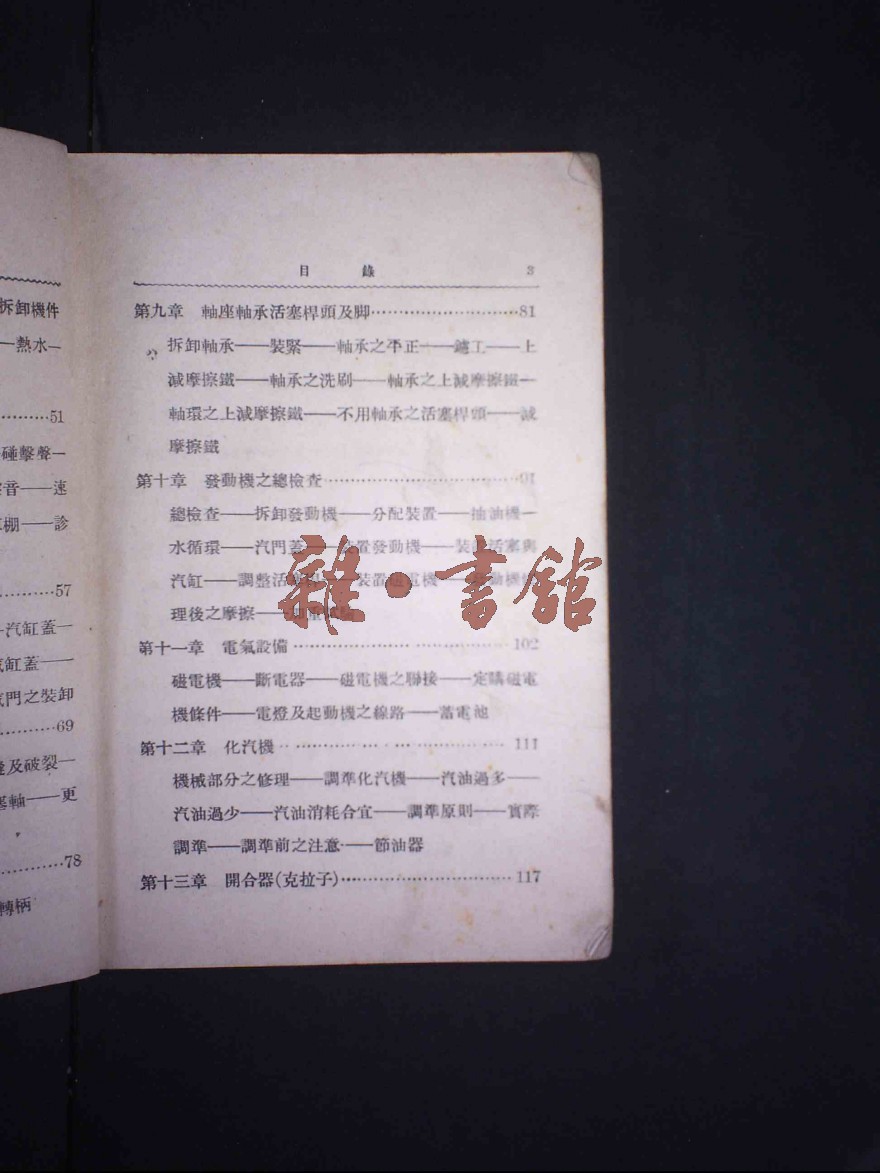 拆卸機件
—熱水—
⋯⋯⋯51
碰擊聲—
音——速
棚——診
⋯⋯⋯57
汽缸蓋—
缸蓋——
門之裝卸
⋯⋯⋯69
及破裂—
軸——更
⋯⋯⋯78
轉柄
目 錄 3
第九章 軸座軸承活塞桿頭及脚⋯⋯⋯81
拆卸軸承——裝緊——軸承之平正——鑢工——上
減摩擦鐵——軸承之洗刷——軸承之上減摩擦鐵—
軸環之上減摩擦鐵——不用軸承之活塞桿頭——減
摩擦鐵
第十章 發動機之總檢查⋯⋯⋯91
總檢查——拆卸發動機——分配裝置——抽油機—
水循環——汽門蓋——裝置發動機——裝 活塞與
汽缸——調整活 ——裝置磁電機——
理後之摩擦——
雜·書館
第十一章 電氣設備⋯⋯⋯102
磁電機——斷電器——磁電機之聯接——定購磁電
機條件——電燈及起動機之線路——蓄電池
第十二章 化汽機⋯⋯⋯111
機械部分之修理——調準化汽機——汽油過多——
汽油過少——汽油消耗合宜——調準原則——實際
調準——調準前之注意——節油器
第十三章 開合器(克拉子)⋯⋯⋯117